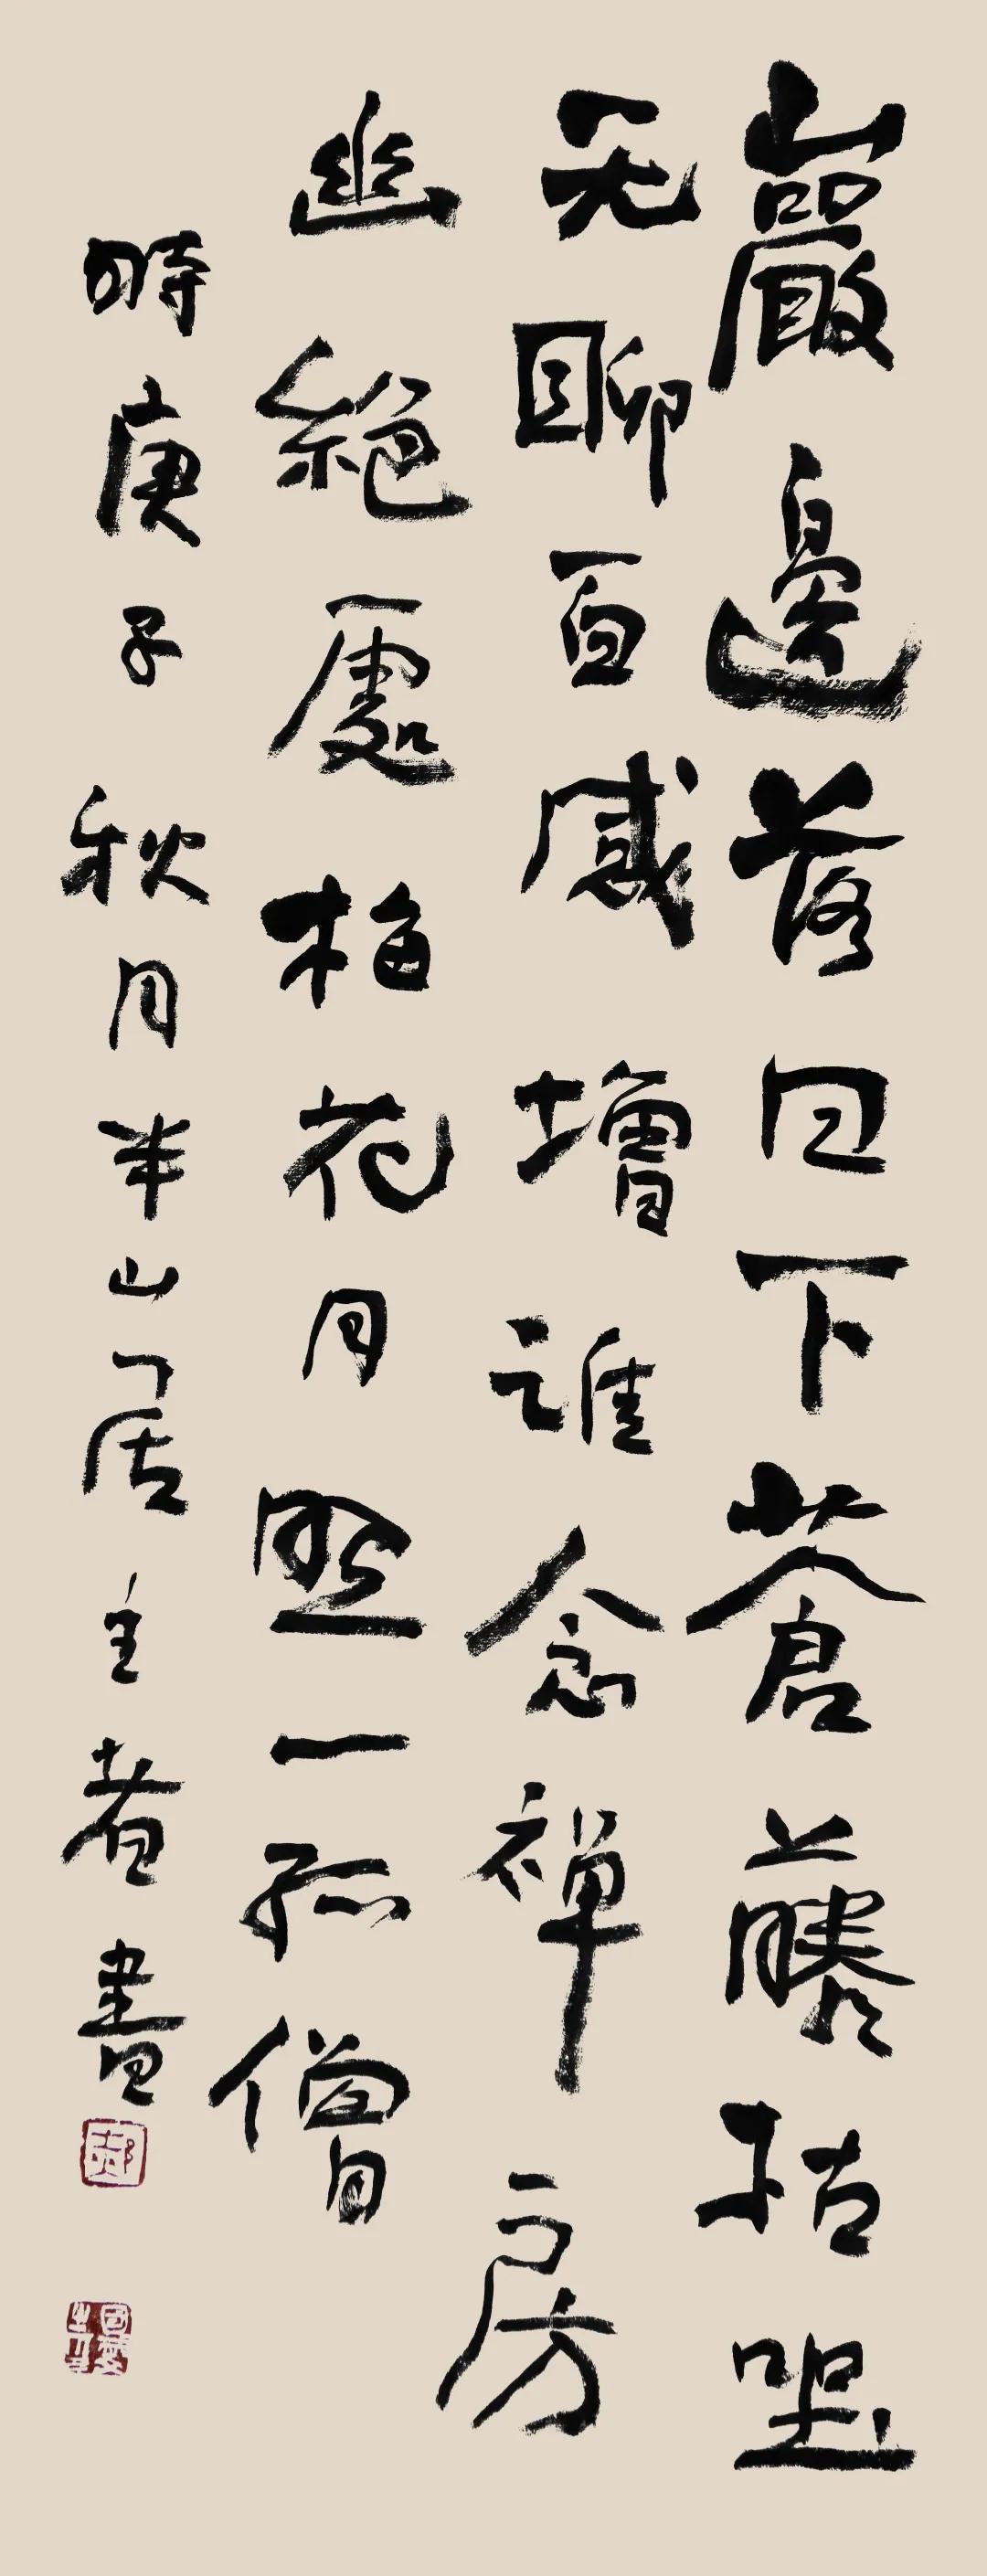 巖邊落日下蒼藤枯坐
无聊百感增誰念禪房
幽絕處梅花月照一孤僧
時庚子秋月半山居主者書
郝